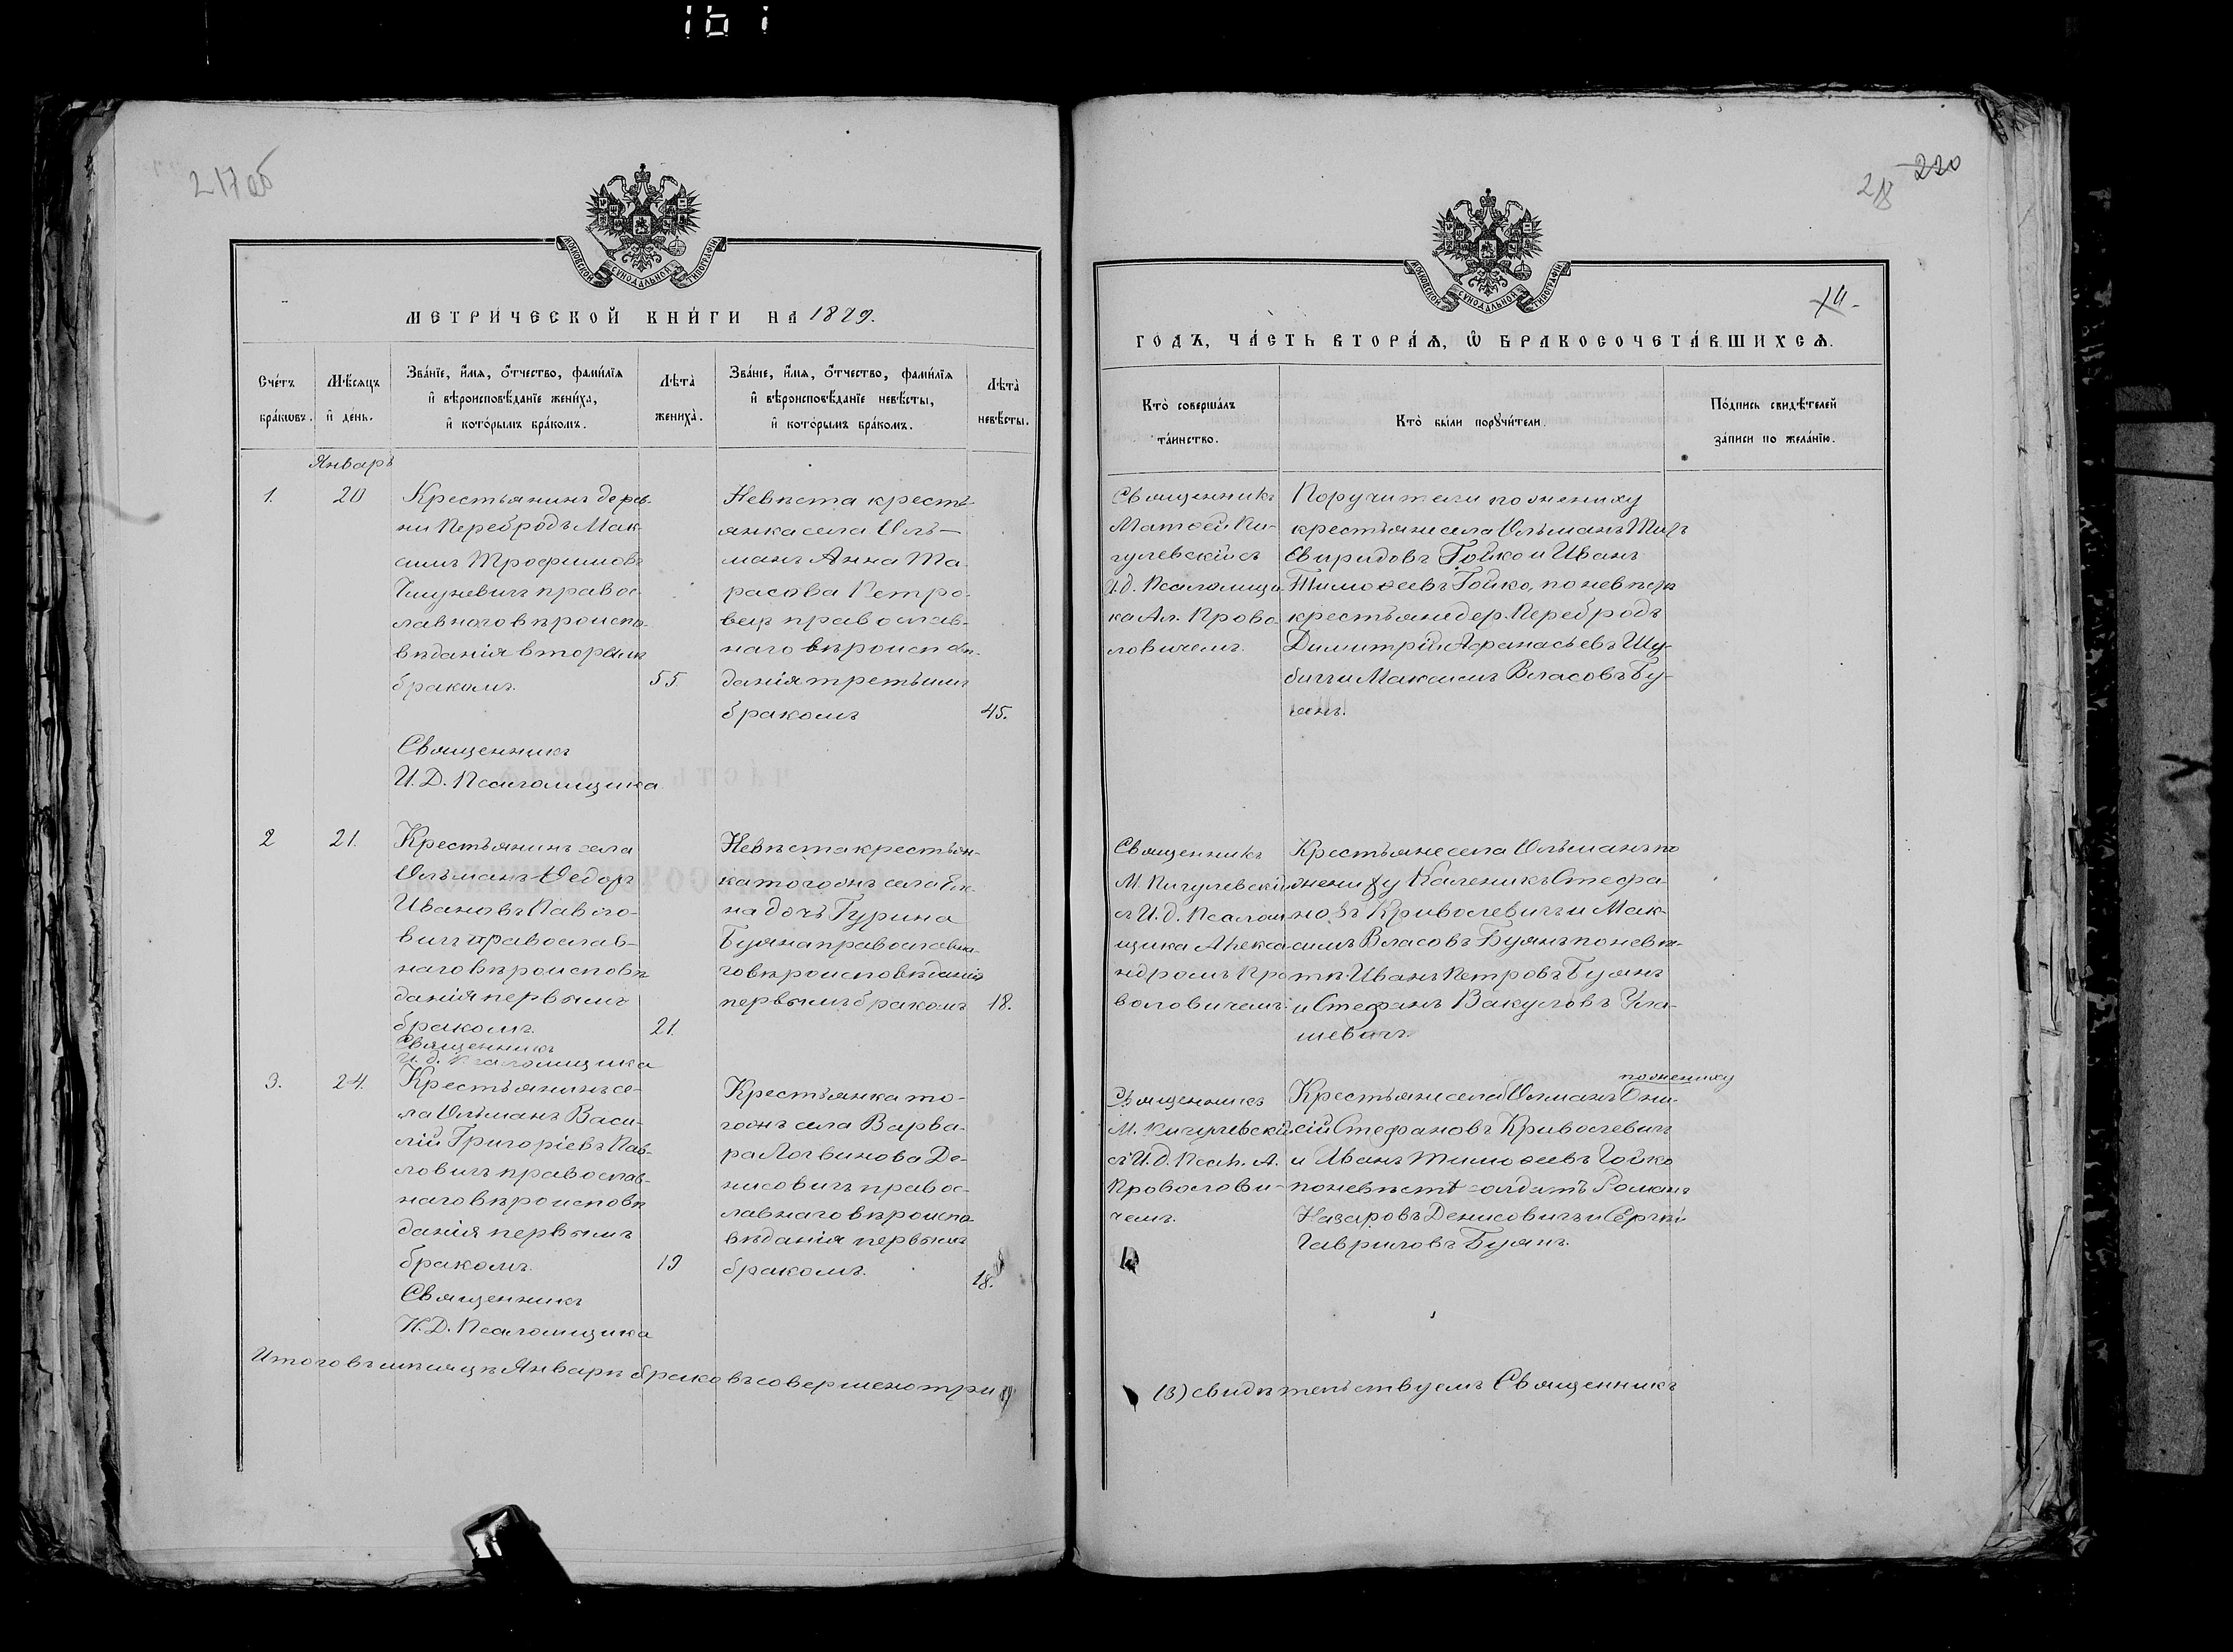 161
217 об
МОСКОВСКОЙ СѴНОДАЛЬНОЙ ТИПОГРАФІИ
МЕТРИ́ЧЕСКОЙ КНИ́ГИ НА 1879.
Сче́тъ бра́ковъ.
Мѣ́сяцъ и҆ де́нь.
Зва́нїе, и҆́мя, ѻ҆́тчество, фами́лїя
и҆ вѣроисповѣ́данїе жениха̀,
и҆ кото́рымъ бра́комъ.
Лѣта̀ жениха̀.
Зва́нїе, и҆́мя, ѻ҆́тчество, фами́лїя
и҆ вѣроисповѣ́данїе невѣ́сты,
и҆ кото́рымъ бра́комъ.
Лѣта̀ невѣ́сты.
Январь
1. 20
Крестьянинъ дерев-
ни Перебродъ Мак-
симъ Трофимовъ
православ-
лавнаго вѣроиспо-
вѣданія вторымъ
бракомъ. 55
Священникъ
И. Д. Псаломщика
Невѣста кресть-
янка села Оль-
манъ Анна Та-
расова Петро-
вецъ православ-
наго вѣроисповѣ-
данія третьимъ
бракомъ 45.
2 21.
Крестьянинъ села
Ольманъ Ѳедоръ
Ивановъ Павло-
вичъ православ-
наго вѣроисповѣ
данія первымъ
бракомъ. 21.
Священникъ
И. д. Псаломщика
Невѣста крестьян-
ка тогожъ села
на дочь Гурина
Буяна православна-
го вѣроисповѣданія
первымъ бракомъ 18.
3. 24.
Крестьянинъ се-
ла Ольманъ Васи-
лій Григоріевъ Пав-
ловичъ православ-
наго вѣроисповѣ
данія первымъ
бракомъ. 19
Священникъ
И. Д. Псаломщика
Крестьянка то-
гожъ села Варва-
ра Логвинова Де-
нисовичъ правос-
лавнаго вѣроиспо-
вѣданія первымъ
бракомъ. 18.
Итого въ мѣсяцѣ Январѣ браковъ совершено три
218 220
МОСКОВСКОЙ СѴНОДАЛЬНОЙ ТИПОГРАФІИ
ГОДЪ, ЧА́СТЬ ВТОРА́Ѧ, Ѡ҆ БРАКОСОЧЕТА́ВШИХСѦ.
Кто̀ соверша́лъ
та́инство.
Кто̀ бы́ли порꙋчи́тели.
По́дпись свидѣ́телей
за́писи по жела́нїю.
Священникъ
Матѳей Пи-
гулевскій съ
И.д. Псаломщи
ка Ал. Прово-
ловичемъ.
Поручители по жениху
крестьяне села Ольманъ
Свиридовъ Гойко и Иванъ
Тимоѳеевъ Гойко, по невѣстѣ
крестьяне дер. Перебродъ
Димитрій Афанасьевъ Шу-
бичъ и Максимъ Власовъ Бу-
янъ.
Священникъ
М. Пигулевскій
съ И. д. Псалом
щика Алекса
ндромъ Про
воловичемъ.
Крестьяне села Ольманъ по
жениху Каленикъ Стефа-
новъ Криволевичъ и Мак-
симъ Власовъ Буянъ по невѣ-
тѣ Иванъ Петровъ Буянъ
и Стефанъ Вакуловъ
шевичъ
Священникъ
М. Пигулевскій
съ И. д. Псал. А.
Проволови-
чемъ.
по жениху
Крестьяне села Ольманъ Они-
сій Стефановъ Криволевичъ
и Иванъ Тимоѳеевъ Гойко
по невѣстѣ солдатъ Романъ
Назаровъ Денисовичъ и Сергѣй
Гавриловъ Буянъ.
(3) свидѣтельствуемъ Священникъ